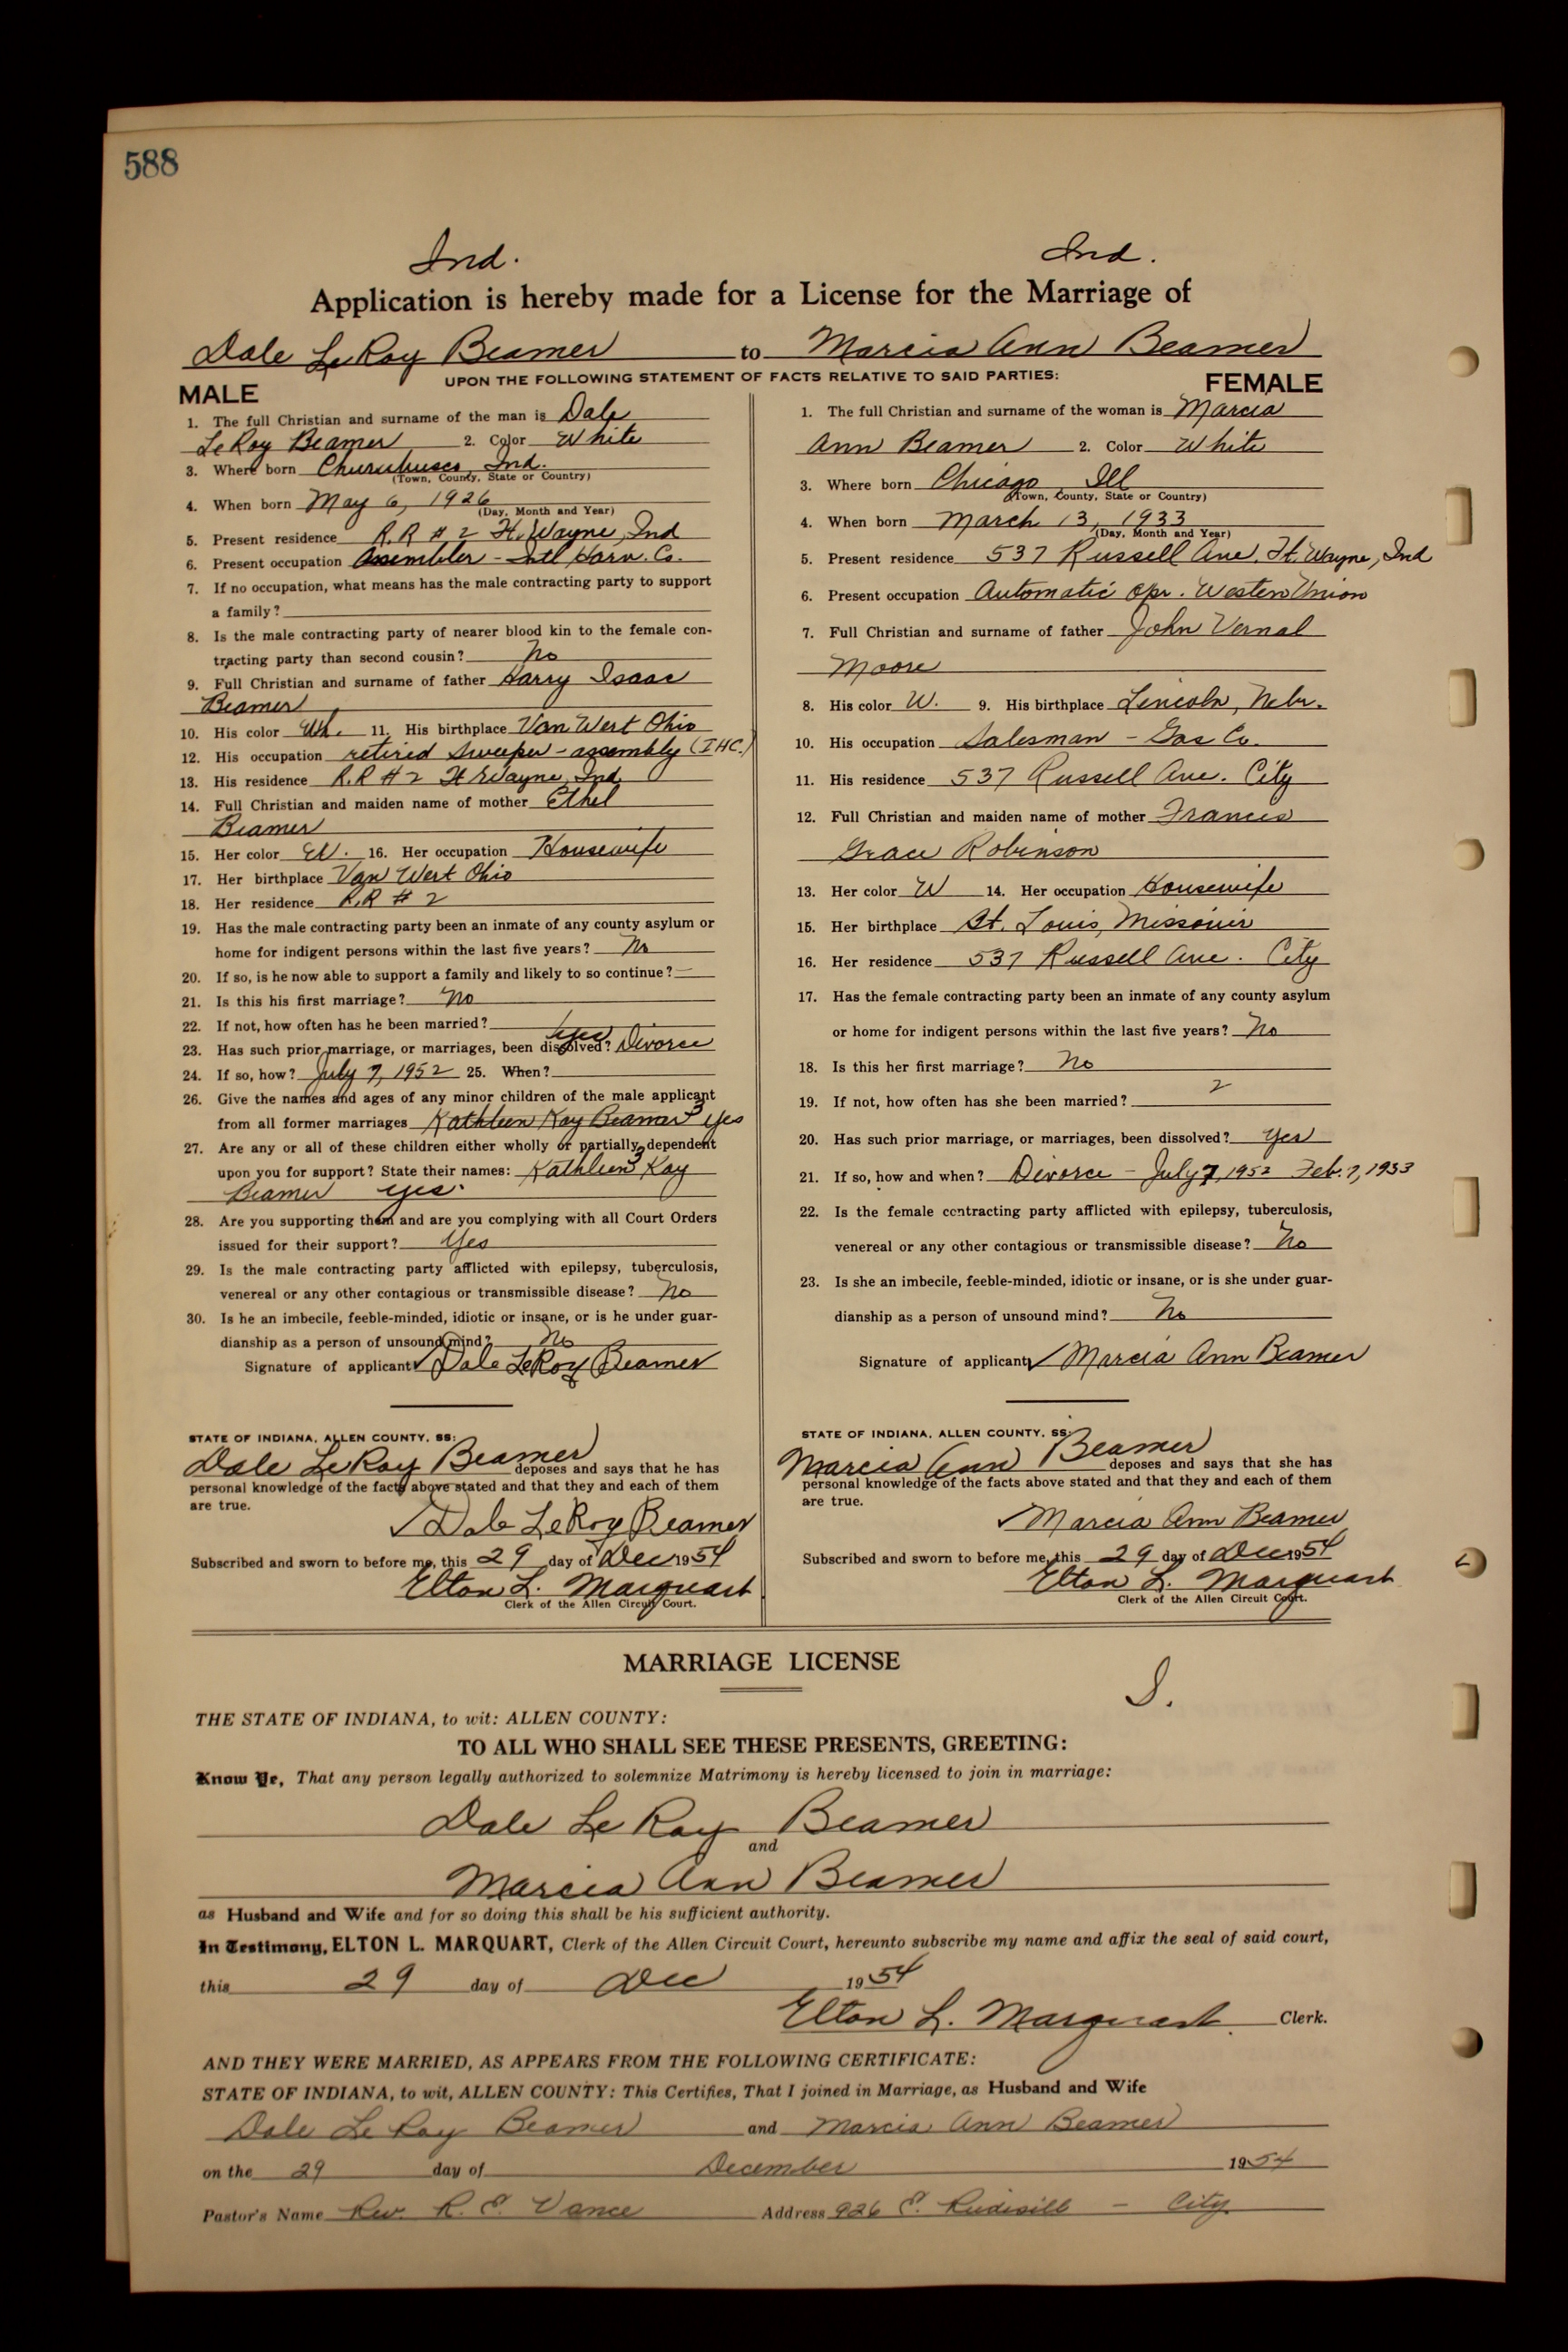 588
Ind. Ind.
Application is hereby made for a License for the Marriage of
Dale LeRoy Beamer to Marcia Ann Beamer
UPON THE FOLLOWING STATEMENT OF FACTS RELATIVE TO SAID PARTIES:
MALE
1. The full Christian and surname of the man is Dale
LeRoy Beamer 2. Color White
3. Where born Churubusco, Ind.
(Town, County, State or Country)
4. When born May 6, 1926
(Day, Month and Year)
5. Present residence R.R # 2 Ft. Wayne, Ind
6. Present occupation Assembler - Intl Harv. Co.
7. If no occupation, what means has the male contracting party to support
a family?
8. Is the male contracting party of nearer blood kin to the female con-
tracting party than second cousin? No
9. Full Christian and surname of father Harry Isaac
Beamer
10. His color Wh. 11. His birthplace Van Wert Ohio
12. His occupation retired sweeper - assembly (IHC.)
13. His residence R.R # 2 Ft Wayne, Ind.
14. Full Christian and maiden name of mother Ethel
Beamer
15. Her color W. 16. Her occupation Housewife
17. Her birthplace Van Wert Ohio
18. Her residence R.R # 2
19. Has the male contracting party been an inmate of any county asylum or
home for indigent persons within the last five years? No
20. If so, is he now able to support a family and likely to so continue? —
21. Is this his first marriage? No
22. If not, how often has he been married? 1
23. Has such prior marriage, or marriages, been dissolved? yes Divorce
24. If so, how? July 7, 1952 25. When?
26. Give the names and ages of any minor children of the male applicant
from all former marriages Kathleen Kay Beamer 3 yes
27. Are any or all of these children either wholly or partially dependent
upon you for support? State their names: Kathleen Kay 3
Beamer yes.
28. Are you supporting them and are you complying with all Court Orders
issued for their support? Yes
29. Is the male contracting party afflicted with epilepsy, tuberculosis,
venereal or any other contagious or transmissible disease? No
30. Is he an imbecile, feeble-minded, idiotic or insane, or is he under guar-
dianship as a person of unsound mind? No
Signature of applicant ✓ Dale LeRoy Beamer
STATE OF INDIANA, ALLEN COUNTY, SS:
Dale LeRoy Beamer deposes and says that he has
personal knowledge of the facts above stated and that they and each of them
are true.
✓ Dale LeRoy Beamer
Subscribed and sworn to before me, this 29 day of Dec 1954
Elton L. Marquart
Clerk of the Allen Circuit Court.
FEMALE
1. The full Christian and surname of the woman is Marcia
Ann Beamer 2. Color White
3. Where born Chicago Ill
(Town, County, State or Country)
4. When born March 13, 1933
(Day, Month and Year)
5. Present residence 537 Russell Ave. Ft. Wayne, Ind
6. Present occupation Automatic Opr. Western Union
7. Full Christian and surname of father John Vernal
Moore
8. His color W. 9. His birthplace Lincoln, Nebr.
10. His occupation Salesman - Gas Co.
11. His residence 537 Russell Ave. City
12. Full Christian and maiden name of mother Frances
Grace Robinson
13. Her color W 14. Her occupation Housewife
15. Her birthplace St. Louis, Missouir
16. Her residence 537 Russell Ave. City
17. Has the female contracting party been an inmate of any county asylum
or home for indigent persons within the last five years? No
18. Is this her first marriage? No
19. If not, how often has she been married? 2
20. Has such prior marriage, or marriages, been dissolved? Yes
21. If so, how and when? Divorce - July 7, 1952 Feb. 7, 1953
22. Is the female contracting party afflicted with epilepsy, tuberculosis,
venereal or any other contagious or transmissible disease? No
23. Is she an imbecile, feeble-minded, idiotic or insane, or is she under guar-
dianship as a person of unsound mind? No
Signature of applicant ✓ Marcia Ann Beamer
STATE OF INDIANA, ALLEN COUNTY, SS:
Marcia Ann Beamer deposes and says that she has
personal knowledge of the facts above stated and that they and each of them
are true.
✓ Marcia Ann Beamer
Subscribed and sworn to before me, this 29 day of Dec 1954
Elton L. Marquart
Clerk of the Allen Circuit Court.
MARRIAGE LICENSE
THE STATE OF INDIANA, to wit: ALLEN COUNTY:
TO ALL WHO SHALL SEE THESE PRESENTS, GREETING:
Know Ye, That any person legally authorized to solemnize Matrimony is hereby licensed to join in marriage:
Dale Le Roy Beamer
and
Marcia Ann Beamer
as Husband and Wife and for so doing this shall be his sufficient authority.
In Testimony, ELTON L. MARQUART, Clerk of the Allen Circuit Court, hereunto subscribe my name and affix the seal of said court,
this 29 day of Dec 1954
Elton L. Marquart. Clerk.
AND THEY WERE MARRIED, AS APPEARS FROM THE FOLLOWING CERTIFICATE:
STATE OF INDIANA, to wit, ALLEN COUNTY: This Certifies, That I joined in Marriage, as Husband and Wife
Dale Le Roy Beamer and Marcia Ann Beamer
on the 29 day of December 1954
Pastor's Name Rev. R. E. Vance Address 926 E. Rudisill - City